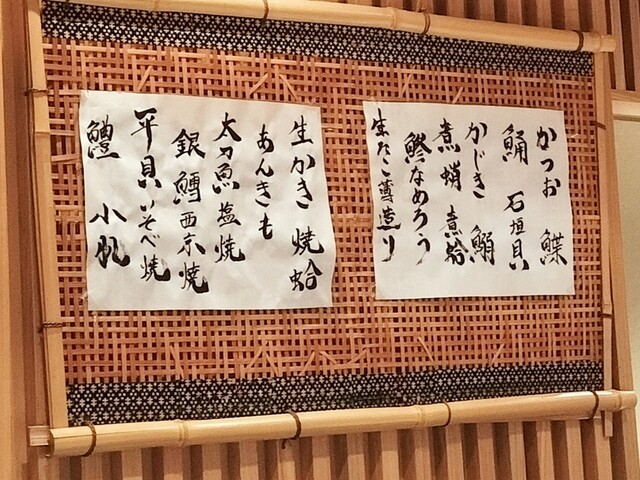 かつお 鰈
鯒 石垣貝
かじき 鰯
煮蛸 煮蛤
鯵なめろう
生たこ薄造り
生かき 焼蛤
あんきも
太刀魚塩焼
銀鱈西京焼
平貝いそべ焼
鱧 小肌